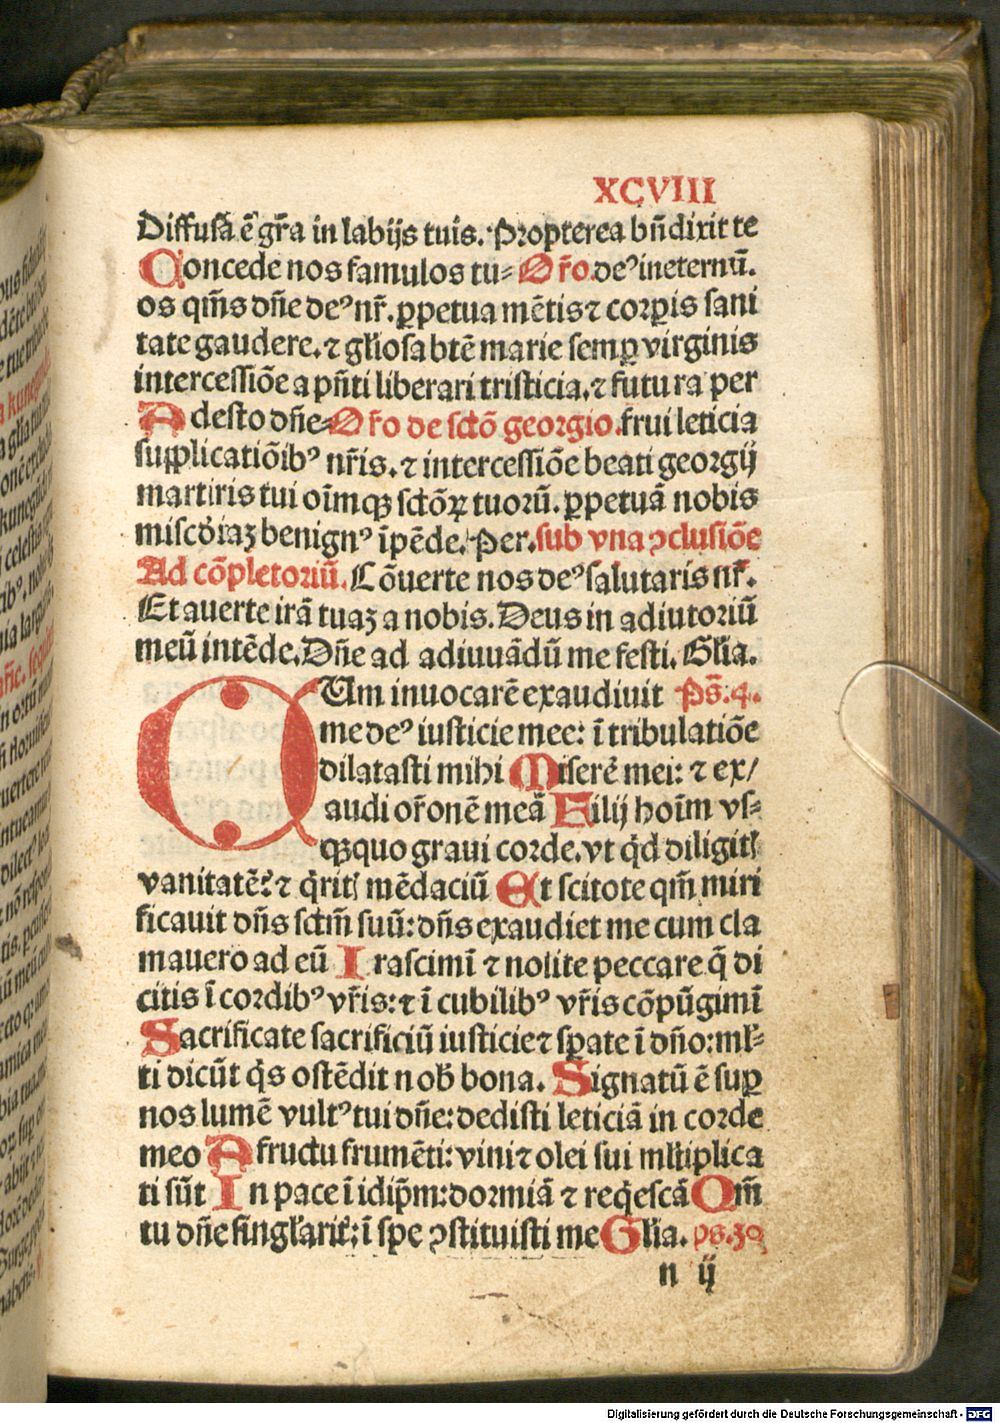 XCVIII
Diffusa ē gr̄a in labijs tuis. Propterea bn̄dixit te
Concede nos famulos tu⸗ Or̄o. deꝰ ineternū.
os qm̄s dn̄e deꝰ nr̄. ꝑpetua mētis ⁊ corꝑis sani
tate gaudere. ⁊ gl̄iosa btē marie semꝑ virginis
intercessiōe a pn̄ti liberari tristicia. ⁊ futura per
Adesto dn̄e⸗ Or̄o de sctō georgio. frui leticia
supplicatiōibꝰ nr̄is. ⁊ intercessiōe beati georgij
martiris tui oīmqꝫ sctōꝝ tuorū. ꝑpetuā nobis
misc̄diaꝫ benignꝰ īpēde. Per. sub vna ꝯclusiōe
Ad cōpletoriū. Cōuerte nos deꝰ salutaris nr̄.
Et auerte irā tuaꝫ a nobis. Deus in adiutoriū
meū intēde. Dn̄e ad adiuuādū me festi. Gl̄ia.
CUm inuocarē exaudiuit Ps̄.4.
me deꝰ iusticie mee: ī tribulatiōe
dilatasti mihi Miserē mei: ⁊ ex/
audi or̄onē meā Filij hoīm vs⸗
qꝫquo graui corde. vt qͥd diligitꝭ
vanitatē: ⁊ qͥritꝭ mēdaciū Et scitote qm̄ miri
ficauit dn̄s sctm̄ suū: dn̄s exaudiet me cum cla
mauero ad eū Irascimī ⁊ nolite peccare q̄ di
citis ī cordibꝰ vr̄is: ⁊ ī cubilibꝰ vr̄is cōpūgimī
Sacrificate sacrificiū iusticie ⁊ sꝑate ī dn̄o: ml̄⸗
ti dicūt qͥs ostēdit nob̄ bona. Signatū ē suꝑ
nos lumē vultꝰ tui dn̄e: dedisti leticiā in corde
meo A fructu frumēti: vini ⁊ olei sui ml̄tiplica
ti sūt In pace ī idip̄m: dormiā ⁊ reqͥescā Qm̄
tu dn̄e singl̄arit̄: ī spe ꝯstituisti me Gl̄ia. ps.30
n ij
Digitalisierung gefördert durch die Deutsche Forschungsgemeinschaft - DFG